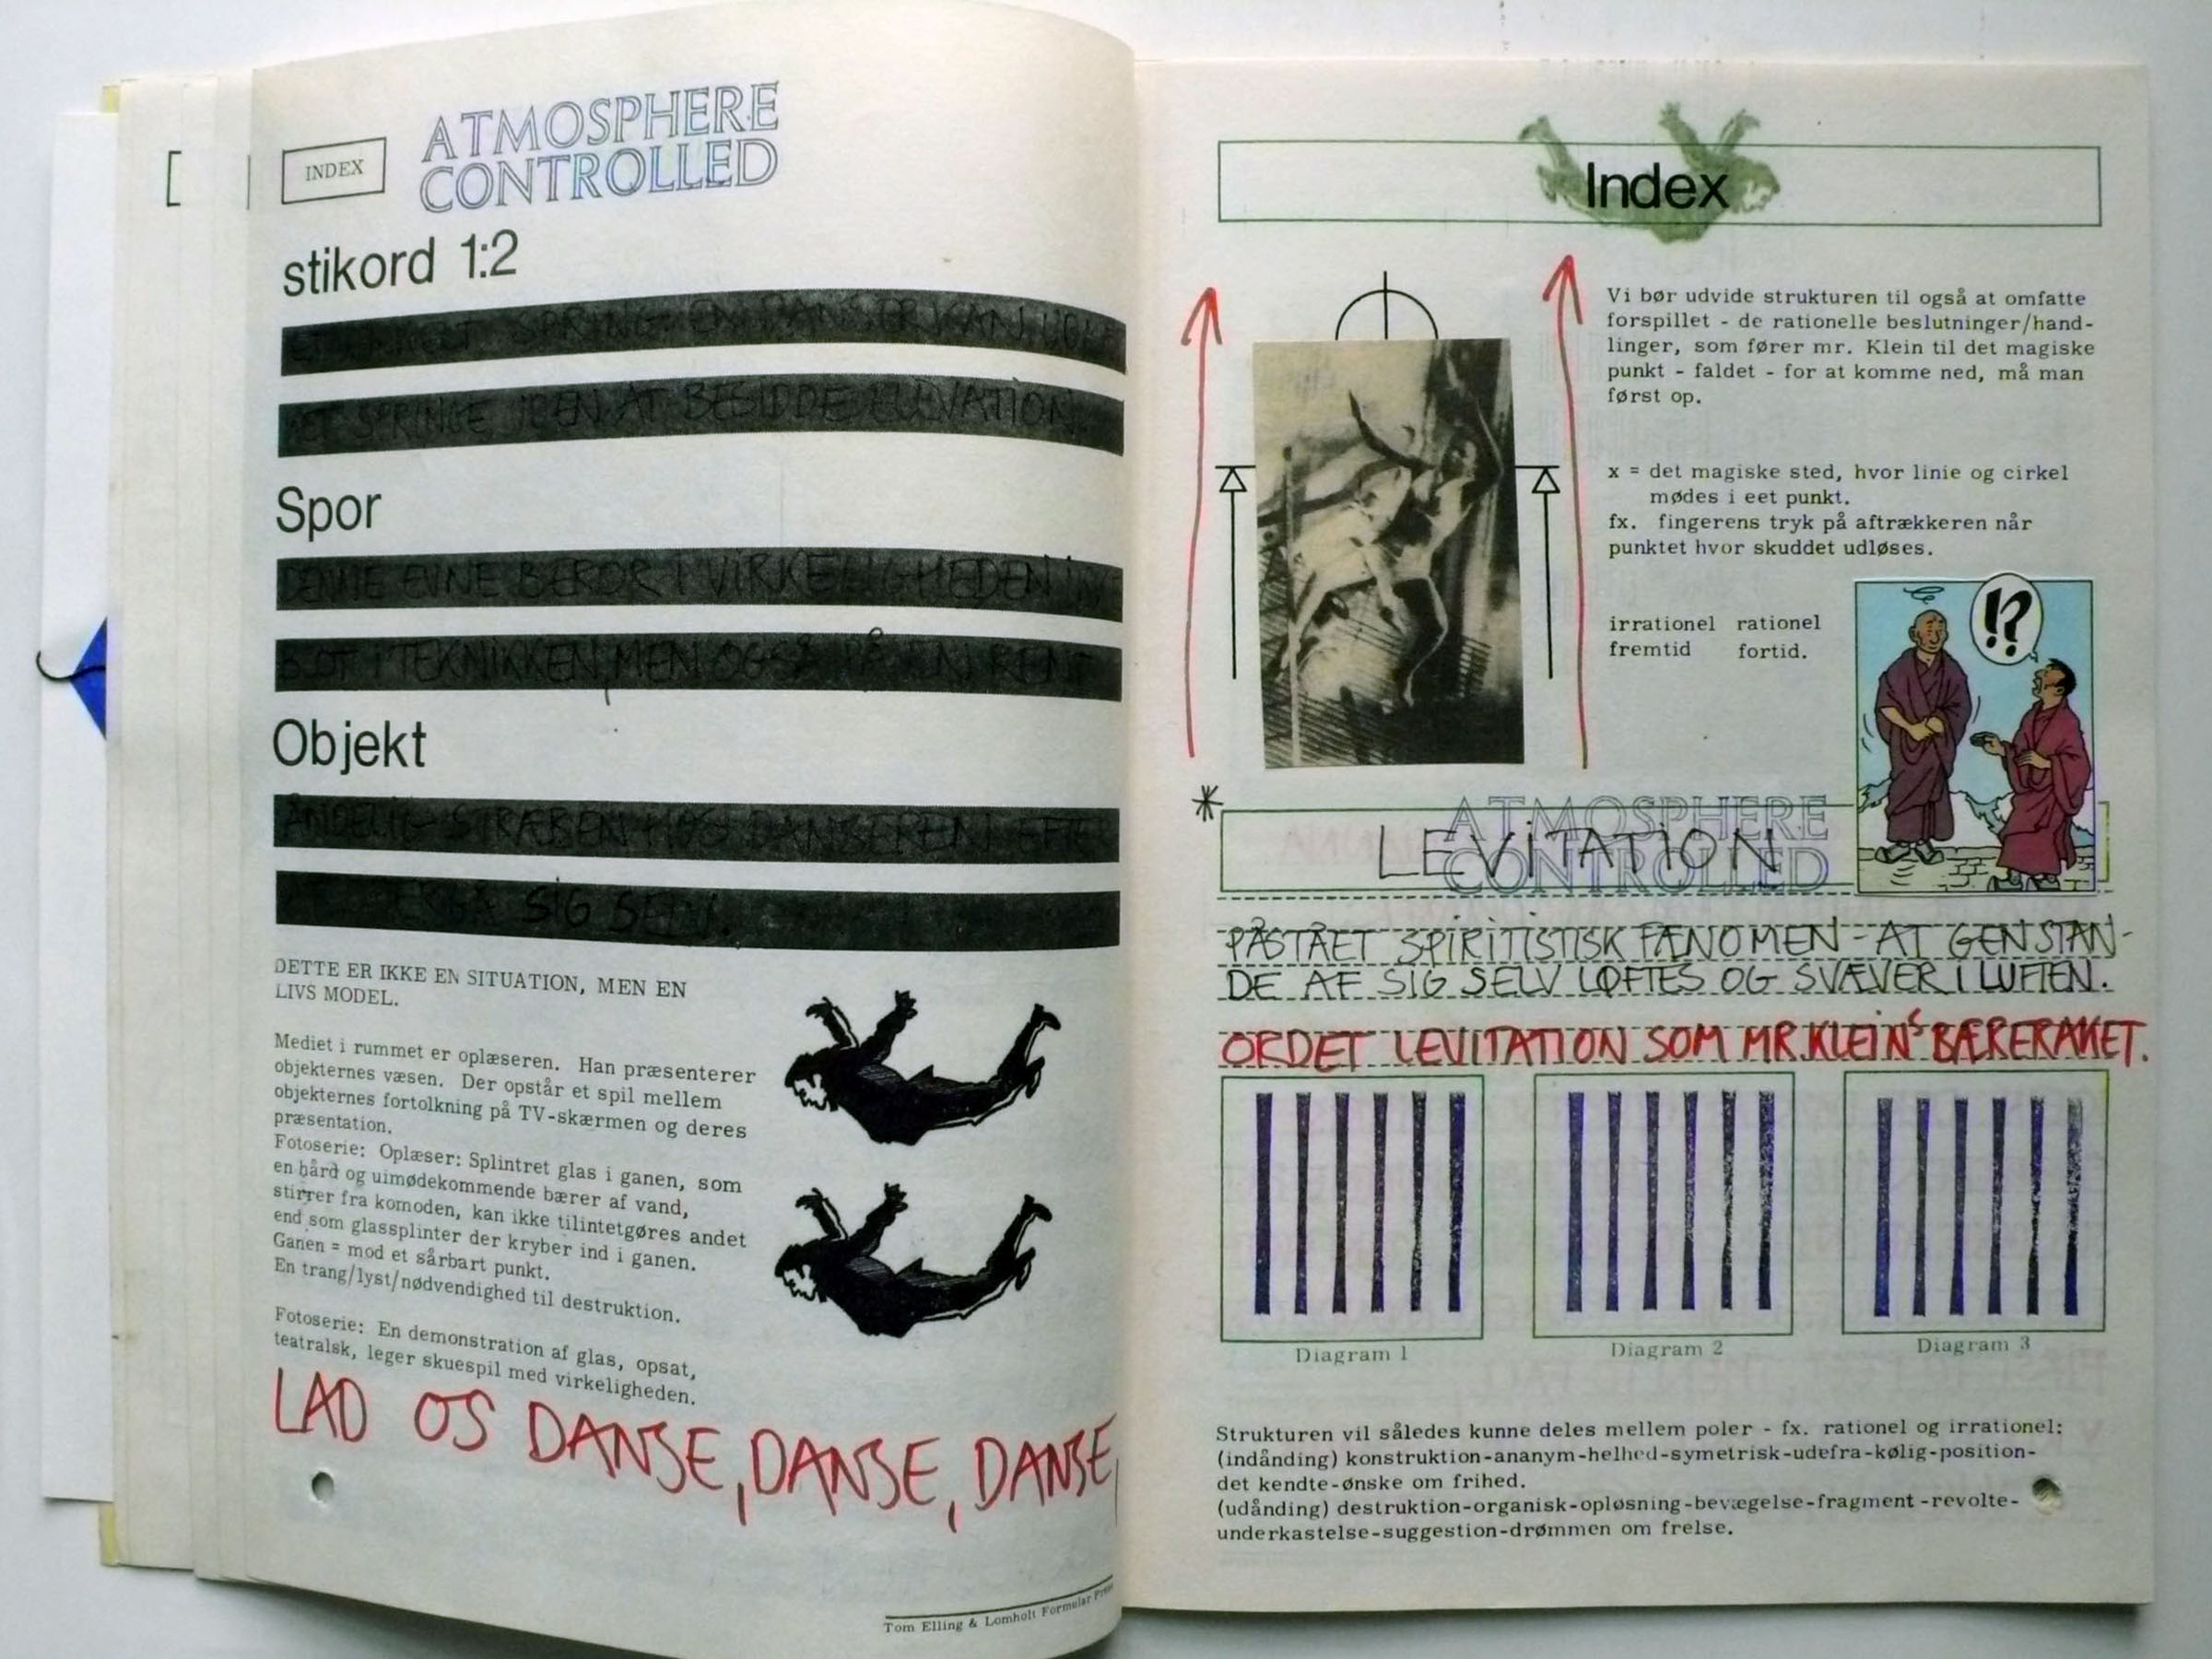 INDEX
ATMOSPHERE
CONTROLLED
stikord 1:2
SPRING. EN DANSER KAN UDE
SPRINGE UDEN AT BESIDDE ELEVATION.
Spor
DENNE EVNE BEROR I VIRKELIGHEDEN
BLOT I TEKNIKKEN, MEN OGSÅ PÅ EN RENT
Objekt
ÅNDELIG STRÆBEN HOS DANSEREN EFTER
SIG SELV.
DETTE ER IKKE EN SITUATION, MEN EN
LIVS MODEL.
Mediet i rummet er oplæseren. Han præsenterer
objekternes væsen. Der opstår et spil mellem
objekternes fortolkning på TV-skærmen og deres
præsentation.
Fotoserie: Oplæser: Splintret glas i ganen, som
en hård og uimødekommende bærer af vand,
stirrer fra komoden, kan ikke tilintetgøres andet
end som glassplinter der kryber ind i ganen.
Ganen = mod et sårbart punkt.
En trang/lyst/nødvendighed til destruktion.
Fotoserie: En demonstration af glas, opsat,
teatralsk, leger skuespil med virkeligheden.
LAD OS DANSE, DANSE, DANSE,
Tom Elling & Lomholt Formular Press
Index
Vi bør udvide strukturen til også at omfatte
forspillet - de rationelle beslutninger/hand-
linger, som fører mr. Klein til det magiske
punkt - faldet - for at komme ned, må man
først op.
x = det magiske sted, hvor linie og cirkel
mødes i eet punkt.
fx. fingerens tryk på aftrækkeren når
punktet hvor skuddet udløses.
irrationel rationel
fremtid fortid.
!?
* LEVITATION
ATMOSPHERE
CONTROLLED
PÅSTÅET SPIRITISTISK FÆNOMEN - AT GENSTAN-
DE AF SIG SELV LØFTES OG SVÆVER I LUFTEN.
ORDET LEVITATION SOM MR. KLEIN'S BÆRERAKET.
Diagram 1
Diagram 2
Diagram 3
Strukturen vil således kunne deles mellem poler - fx. rationel og irrationel:
(indånding) konstruktion-ananym-helhed-symetrisk-udefra-kølig-position-
det kendte-ønske om frihed.
(udånding) destruktion-organisk-opløsning-bevægelse-fragment-revolte-
underkastelse-suggestion-drømmen om frelse.